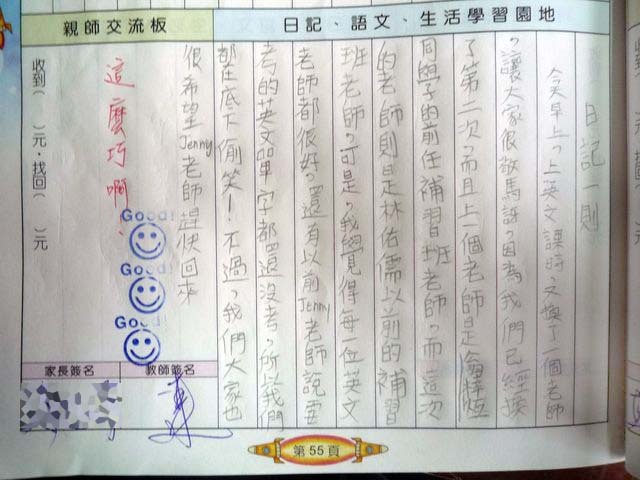 親師交流板
日記、語文、生活學習園地
日記一則
今天早上，上英文課時，又換了一個老師
，讓大家很敬馬訝，因為我們已經換
了第二次，而且上一個老師是翁梓恆
同學的前任補習班老師，而這次
的老師則是林佑儒以前的補習
班老師，可是，我覺得每一位英文
老師都很好，還有以前Jenny老師說要
考的英文單字都還沒考，所以我們
都在底下偷笑！不過，我們大家也
很希望Jenny老師趕快回來
這麼巧啊！
Good!
Good!
Good!
收到（ ）元，找回（ ）元
家長簽名
教師簽名
第55頁